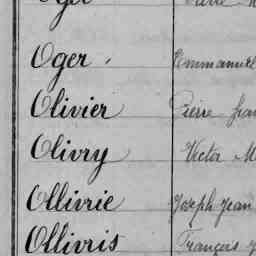 Oger Emmanuel
Olivier Pierre Jean
Olivry Victor M
Ollivrie Joseph Jean
Ollivris François